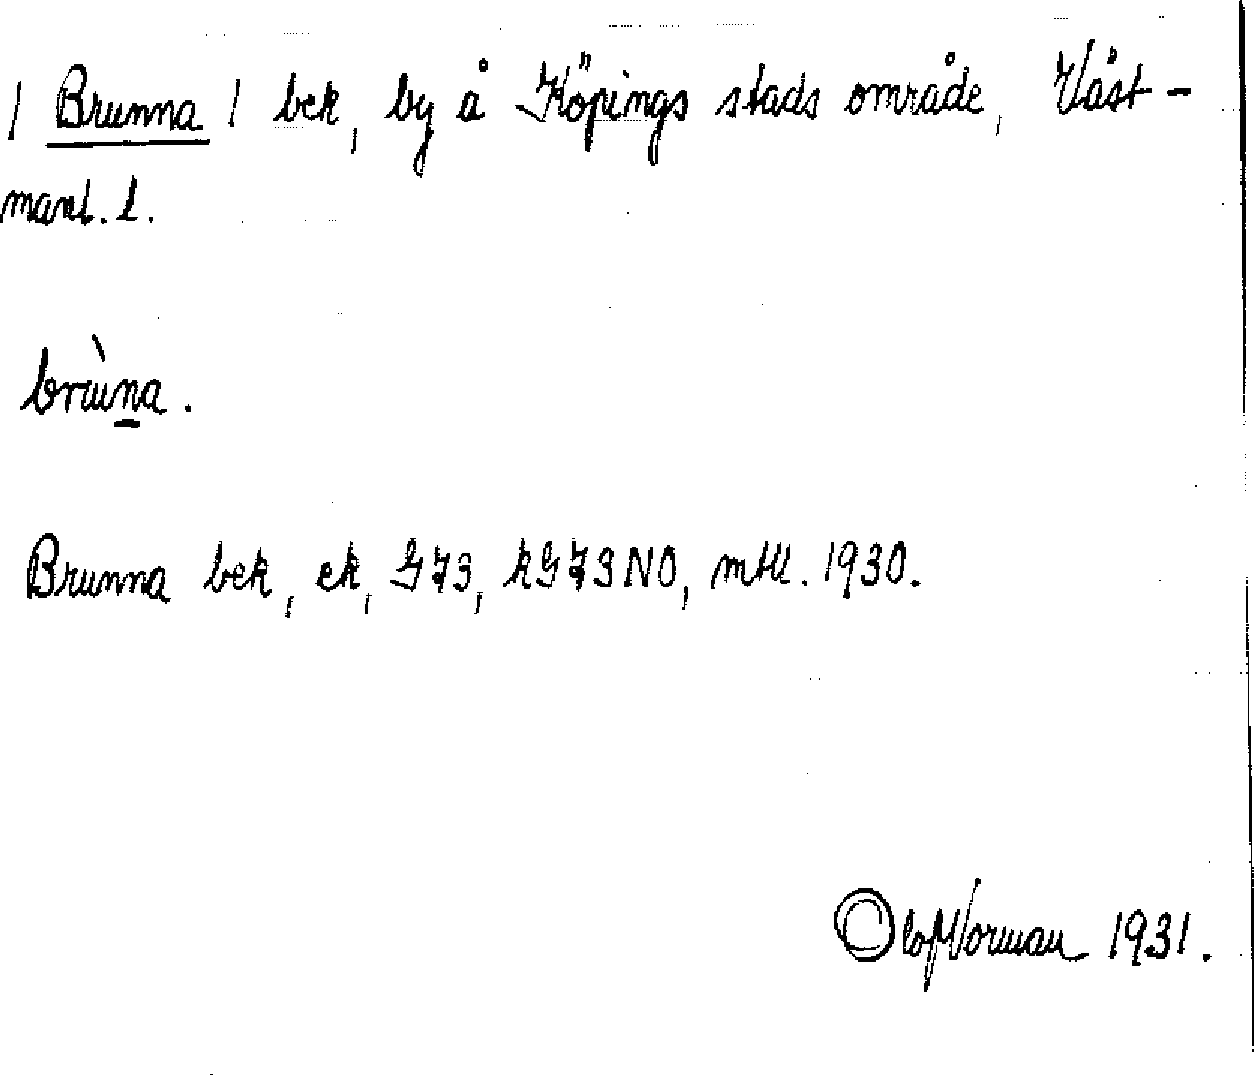 / Brunna / bek, by å Köpings stads område, Väst-
manl. l.
brùna.
Brunna bek, ek, G73, kG73NO, mtll. 1930.
Olof Norman 1931.